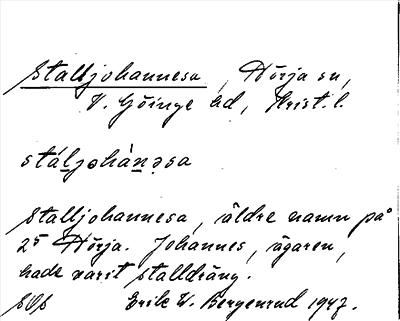 Stalljohannesa, Hörja sn,
V. Göinge hd, Krist. l.
stál̲johàn̲əsa
Stalljohannesa, äldre namn på
25 Hörja. Johannes, ägaren,
hade varit stalldräng.
Erik W. Bergenrud 1947.